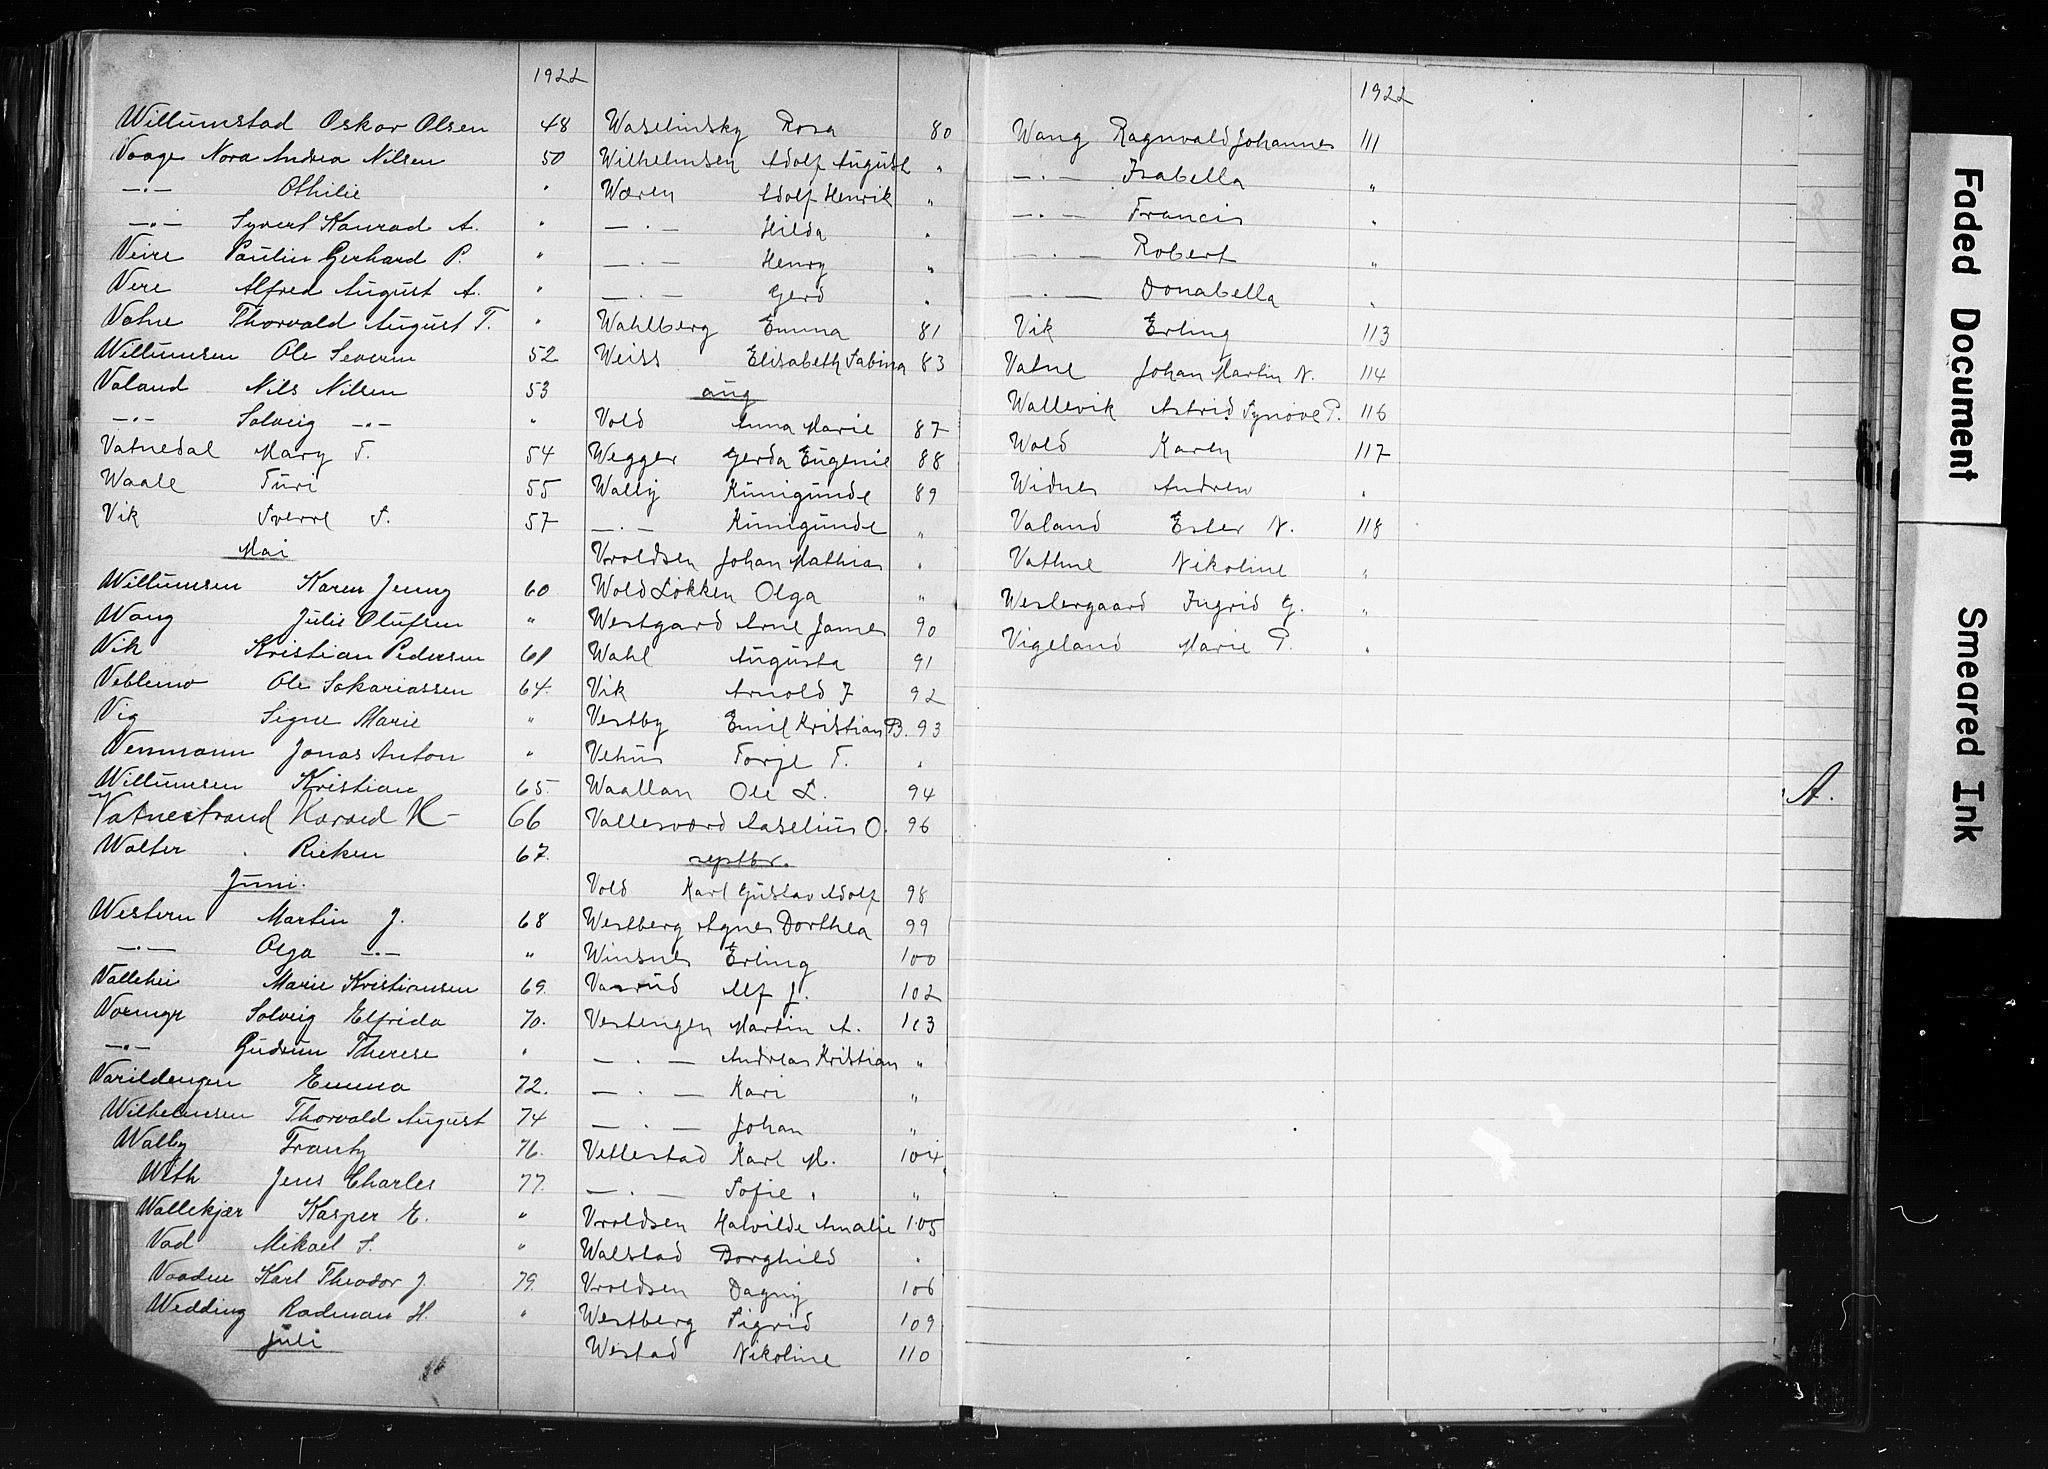 1922
Willumstad Oskar Olsen 48
Vaage Nora Andrea Nilsen 50
—·— Othilie "
—·— Syvert Konrad A. "
Veire Paulin Gerhard P. "
Vere Alfred August A. "
Vatne Thorvald August T. "
Willumsen Ole Severin 52
Valand Nils Nilsen 53
—·— Solveig —·— "
Vatnedal Mary T. 54
Waale Turi 55
Vik Sverre S. 57
Mai
Willumsen Karen Jenny 60
Wang Julie Olufsen "
Vik Kristian Pedersen 61
Ole Sakariassen 64.
Vig Signe Marie "
Wenmann Jonas Anton "
Willumsen Kristian 65.
Vatnestrand Harald K— 66
Walter Rieken 67.
Juni.
Western Martin J. 68
—·— Olga —·— "
Vallehei Marie Kristiansen 69.
Vormyr Solveig Elfrida 70.
—·— Gudrun Therese "
Varildengen Emma 72.
Wilhelmsen Thorvald August 74
Walby Frantz 76.
With Jens Charles 77.
Wallekjær Kasper E. "
Vad Mikael S. "
Vaadne Karl Theodor J. 79.
Wedding Radman H. "
Juli
Waselinsky Rosa 80
Wilhelmsen Adolf August "
Wæren Adolf Henrik "
—·— Hilda "
—·— Henry "
—·— Gerd "
Wahlberg Emma 81
Weiss Elisabeth Sabina 83
aug
Vold Anna Marie 87
Wegger Gerda Eugenie 88
Wally Kunigunde 89
—·— Kunigunde "
Vroldsen Johan Mathias "
Wold Løkken Olga "
Westgard Arne James 90
Wahl Augusta 91
Vik Arnold J 92
Vestby Emil Kristian B. 93
Vehus Torje T. "
Waallan Ole L. 94
Vallesværd Aaselius O. 96
septbr.
Vold Karl Gustav Adolf 98
Westberg Agnes Dorthea 99
Winsnes Erling 100
Vasrud Alf J. 102
Vestengen Martin A. 103
—·— Andreas Kristian "
—·— Kari "
—·— Johan "
Vetlestad Karl M. 104
—·— Sofie "
Vroldsen Halvilde Amalie 105
Walstad Borghild "
Vroldsen Dagny 106
Westberg Sigrid 109
Wistad Nikoline 110
1922
Wang Ragnvald Johannes 111
—·— Isabella "
—·— Francis "
—·— Robert "
—·— Donabella "
Vik Erling 113
Vatne Johan Martin N. 114
Wallevik Astrid Synøve P. 116
Wold Karen 117
Widnes Andrew "
Valand Ester N. 118
Vathne Nikoline "
Westergaard Ingrid G. "
Vigeland Marie P. "
A.
Faded Document
Smeared Ink